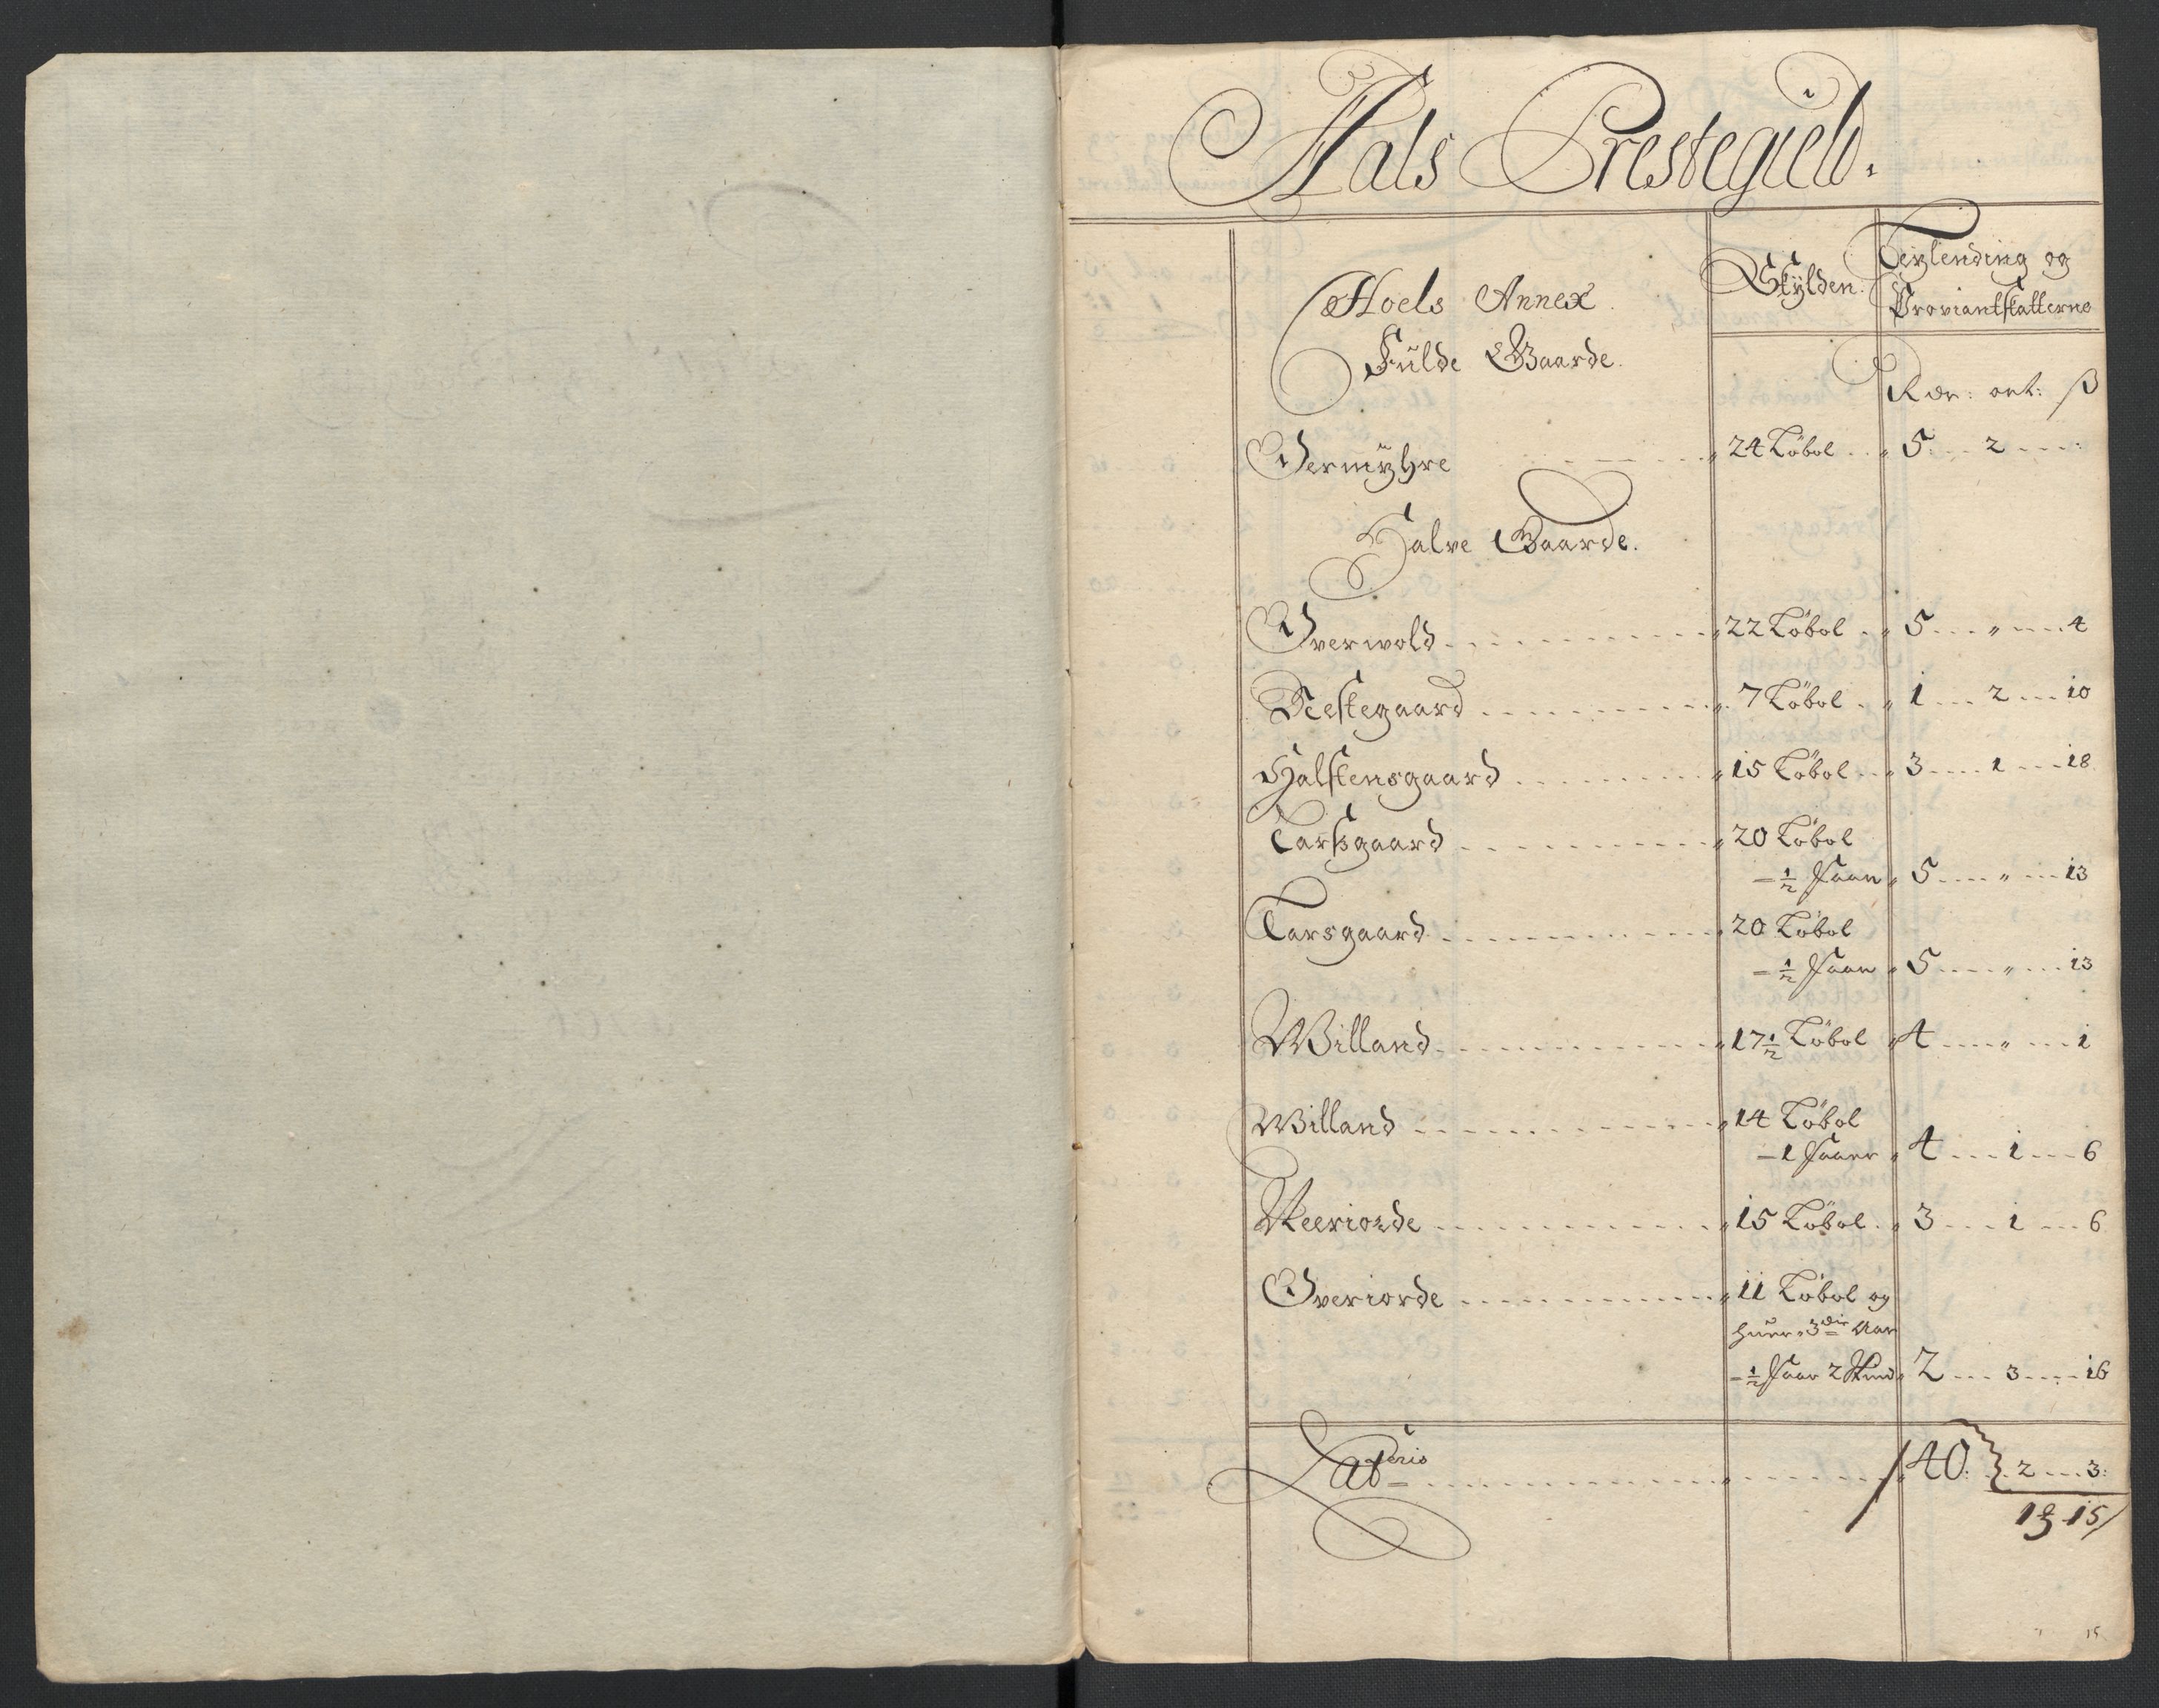 Hals Prestegield.
Hoels Annex.
Skylden:
Leylending og
Proviantskatterne
Fulde Gaarde.
Rdr: ort: β
Øermyhre 24 Løbol 5 2
Halve Gaarde.
Øverwold 22 Løbol 5 " 4
Nestegaard 7 Løbol 1 2 10
Halstensgaard 15 Løbol 3 1 18
Larsgaard 20 Løbol
- 1/2 faar 5 " 13
Larsgaard 20 Løbol
- 1/2 faar 5 " 13
Willand 17 1/2 Løbol 4 " 1
Willand 14 Løbol
- 1 faar 4 1 6
Neeriorde 15 Løbol 3 1 6
Øveriorde 11 Løbol og
huer 3die Aar
- 1/2 faar 2 Skind 2 3 16
Lateris 40: 2 3:
15
15